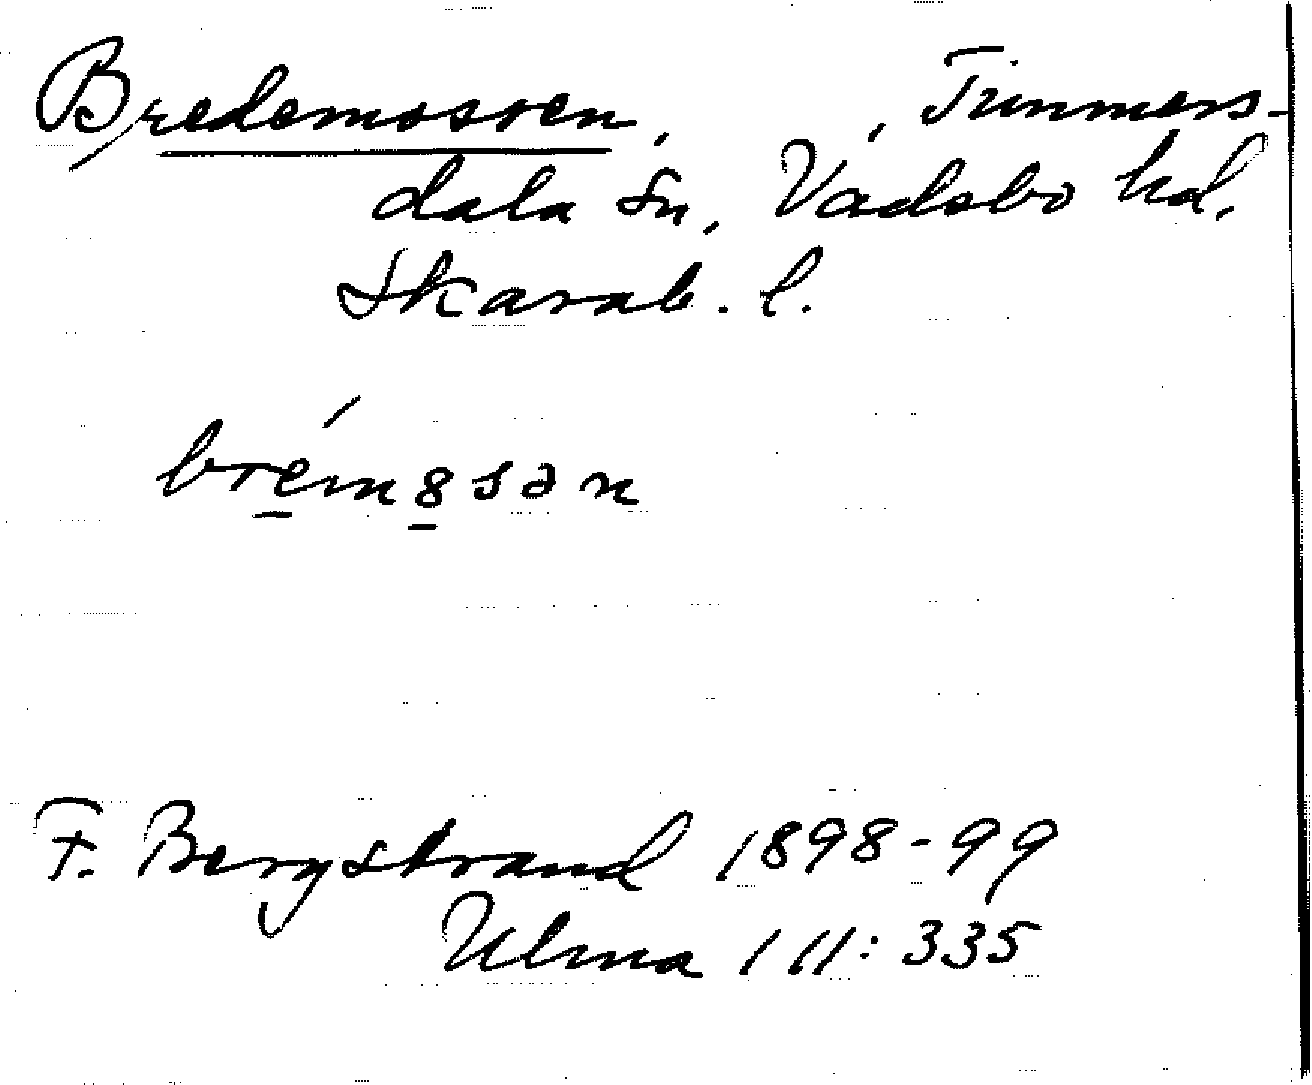 Bredemossen, , Timmers-
dala sn, Vadsbo hd.
Skarab. l.
F. Bergstrand 1898-99
Ulma 111:335